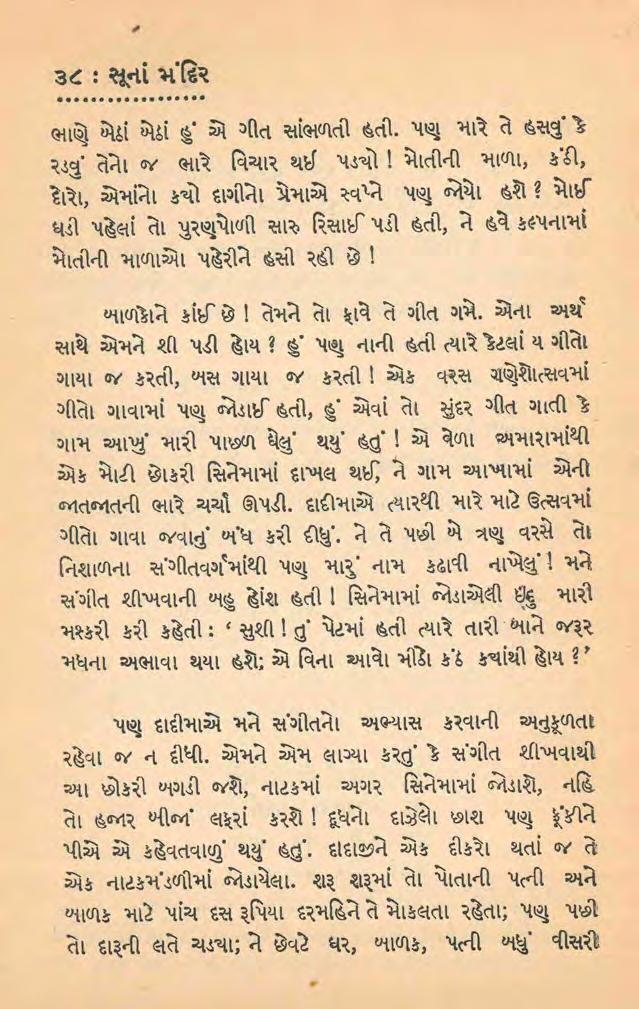 ૩૮ : સૂનાં મંદિર
ભાણે બેઠાં બેઠાં હું એ ગીત સાંભળતી હતી. પણ મારે તે હસવું કે
રડવું તેનો જ ભારે વિચાર થઈ પડ્યો ! મોતીની માળા, કંઠી,
દોરો, એમાંનો કયો દાગીનો પ્રેમાએ સ્વપ્ને પણ જોયો હશે ? મોઈ
ઘડી પહેલાં તો પુરણપોળી સારુ રિસાઈ પડી હતી, ને હવે કલ્પનામાં
મોતીની માળાઓ પહેરીને હસી રહી છે !
બાળકોને કાંઈ છે ! તેમને તો ફાવે તે ગીત ગમે. એના અર્થ
સાથે એમને શી પડી હોય ? હું પણ નાની હતી ત્યારે કેટલાં ય ગીતો
ગાયા જ કરતી, બસ ગાયા જ કરતી ! એક વરસ ગણેશોત્સવમાં
ગીતો ગાવામાં પણ જોડાઈ હતી, હું એવાં તો સુંદર ગીત ગાતી કે
ગામ આખું મારી પાછળ ઘેલું થયું હતું ! એ વેળા અમારામાંથી
એક મોટી છોકરી સિનેમામાં દાખલ થઈ, ને ગામ આખામાં એની
જાતજાતની ભારે ચર્ચા ઊપડી. દાદીમાએ ત્યારથી મારે માટે ઉત્સવમાં
ગીતો ગાવા જવાનું બંધ કરી દીધું. ને તે પછી બે ત્રણ વરસે તો
નિશાળના સંગીતવર્ગમાંથી પણ મારું નામ કઢાવી નાખેલું ! મને
સંગીત શીખવાની બહુ હોંશ હતી ! સિનેમામાં જોડાએલી ઇંદુ મારી
મશ્કરી કરી કહેતી : ‘ સુશી ! તું પેટમાં હતી ત્યારે તારી બાને જરૂર
મધના અભાવા થયા હશે; એ વિના આવો મીઠો કંઠ ક્યાંથી હોય ?’
પણ દાદીમાએ મને સંગીતનો અભ્યાસ કરવાની અનુકૂળતા
રહેવા જ ન દીધી. એમને એમ લાગ્યા કરતું કે સંગીત શીખવાથી
આ છોકરી બગડી જશે, નાટકમાં અગર સિનેમામાં જોડાશે, નહિ
તો હજાર બીજાં લફરાં કરશે ! દૂધનો દાઝેલો છાશ પણ ફૂંકીને
પીએ એ કહેવતવાળું થયું હતું. દાદાજીને એક દીકરો થતાં જ તે
એક નાટકમંડળીમાં જોડાયેલા. શરૂ શરૂમાં તો પોતાની પત્ની અને
બાળક માટે પાંચ દસ રૂપિયા દરમહિને તે મોકલતા રહેતા; પણ પછી
તો દારૂની લતે ચડ્યા; ને છેવટે ઘર, બાળક, પત્ની બધું વીસરી